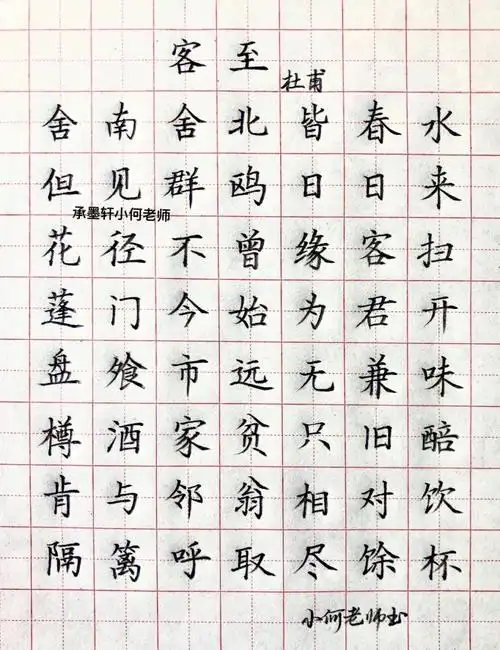 客至
杜甫
舍南舍北皆春水
但见群鸥日日来
承墨轩小何老师
花径不曾缘客扫
蓬门今始为君开
盘飧市远无兼味
樽酒家贫只旧醅
肯与邻翁相对饮
隔篱呼取尽馀杯
小何老师书